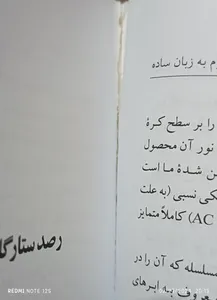 م به زبان ساده
را بر سطح کرهٔ
نور آن محصول
ن شدهٔ ما است
کی نسبی (به علت
AC) کاملاً متمایز
مسلسله که آن را در
به ابرهای
رصد ستارگا
REDMI NOTE 12S